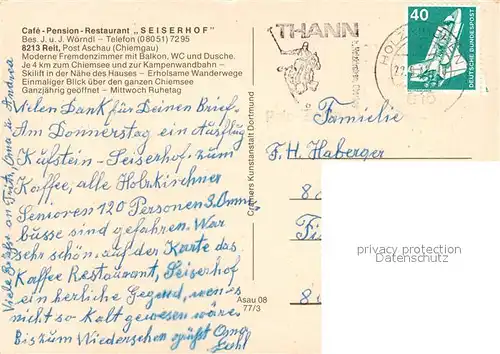 Café-Pension-Restaurant „SEISERHOF"
Bes. J. u. J. Wörndl – Telefon (08051) 7295
8213 Reit, Post Aschau (Chiemgau)
Moderne Fremdenzimmer mit Balkon, WC und Dusche.
Je 4 km zum Chiemsee und zur Kampenwandbahn –
Skilift in der Nähe des Hauses – Erholsame Wanderwege
Einmaliger Blick über den ganzen Chiemsee
Ganzjährig geöffnet – Mittwoch Ruhetag
Vielen Dank für Deinen Brief.
Am Donnerstag ein Ausflug
Kufstein - Seiserhof. zum
Kaffee, alle Holzkirchner
Senioren 120 Personen 3. Omni
busse sind gefahren. War
sehr schön, auf der Karte das
Kaffee Restaurant, Seiserhof
ein herliche Gegend, wen es
nicht so Kalt gewesen wäre.
Bis zum Wiedersehen grüßt Oma
Viele Grüße an Fritz, Oma u. Andrea
Cramers Kunstanstalt Dortmund
Asau 08
77/3
THANN
40
DEUTSCHE BUNDESPOST
Familie
F. H. Haberger
8
8
privacy protection
Datenschutz